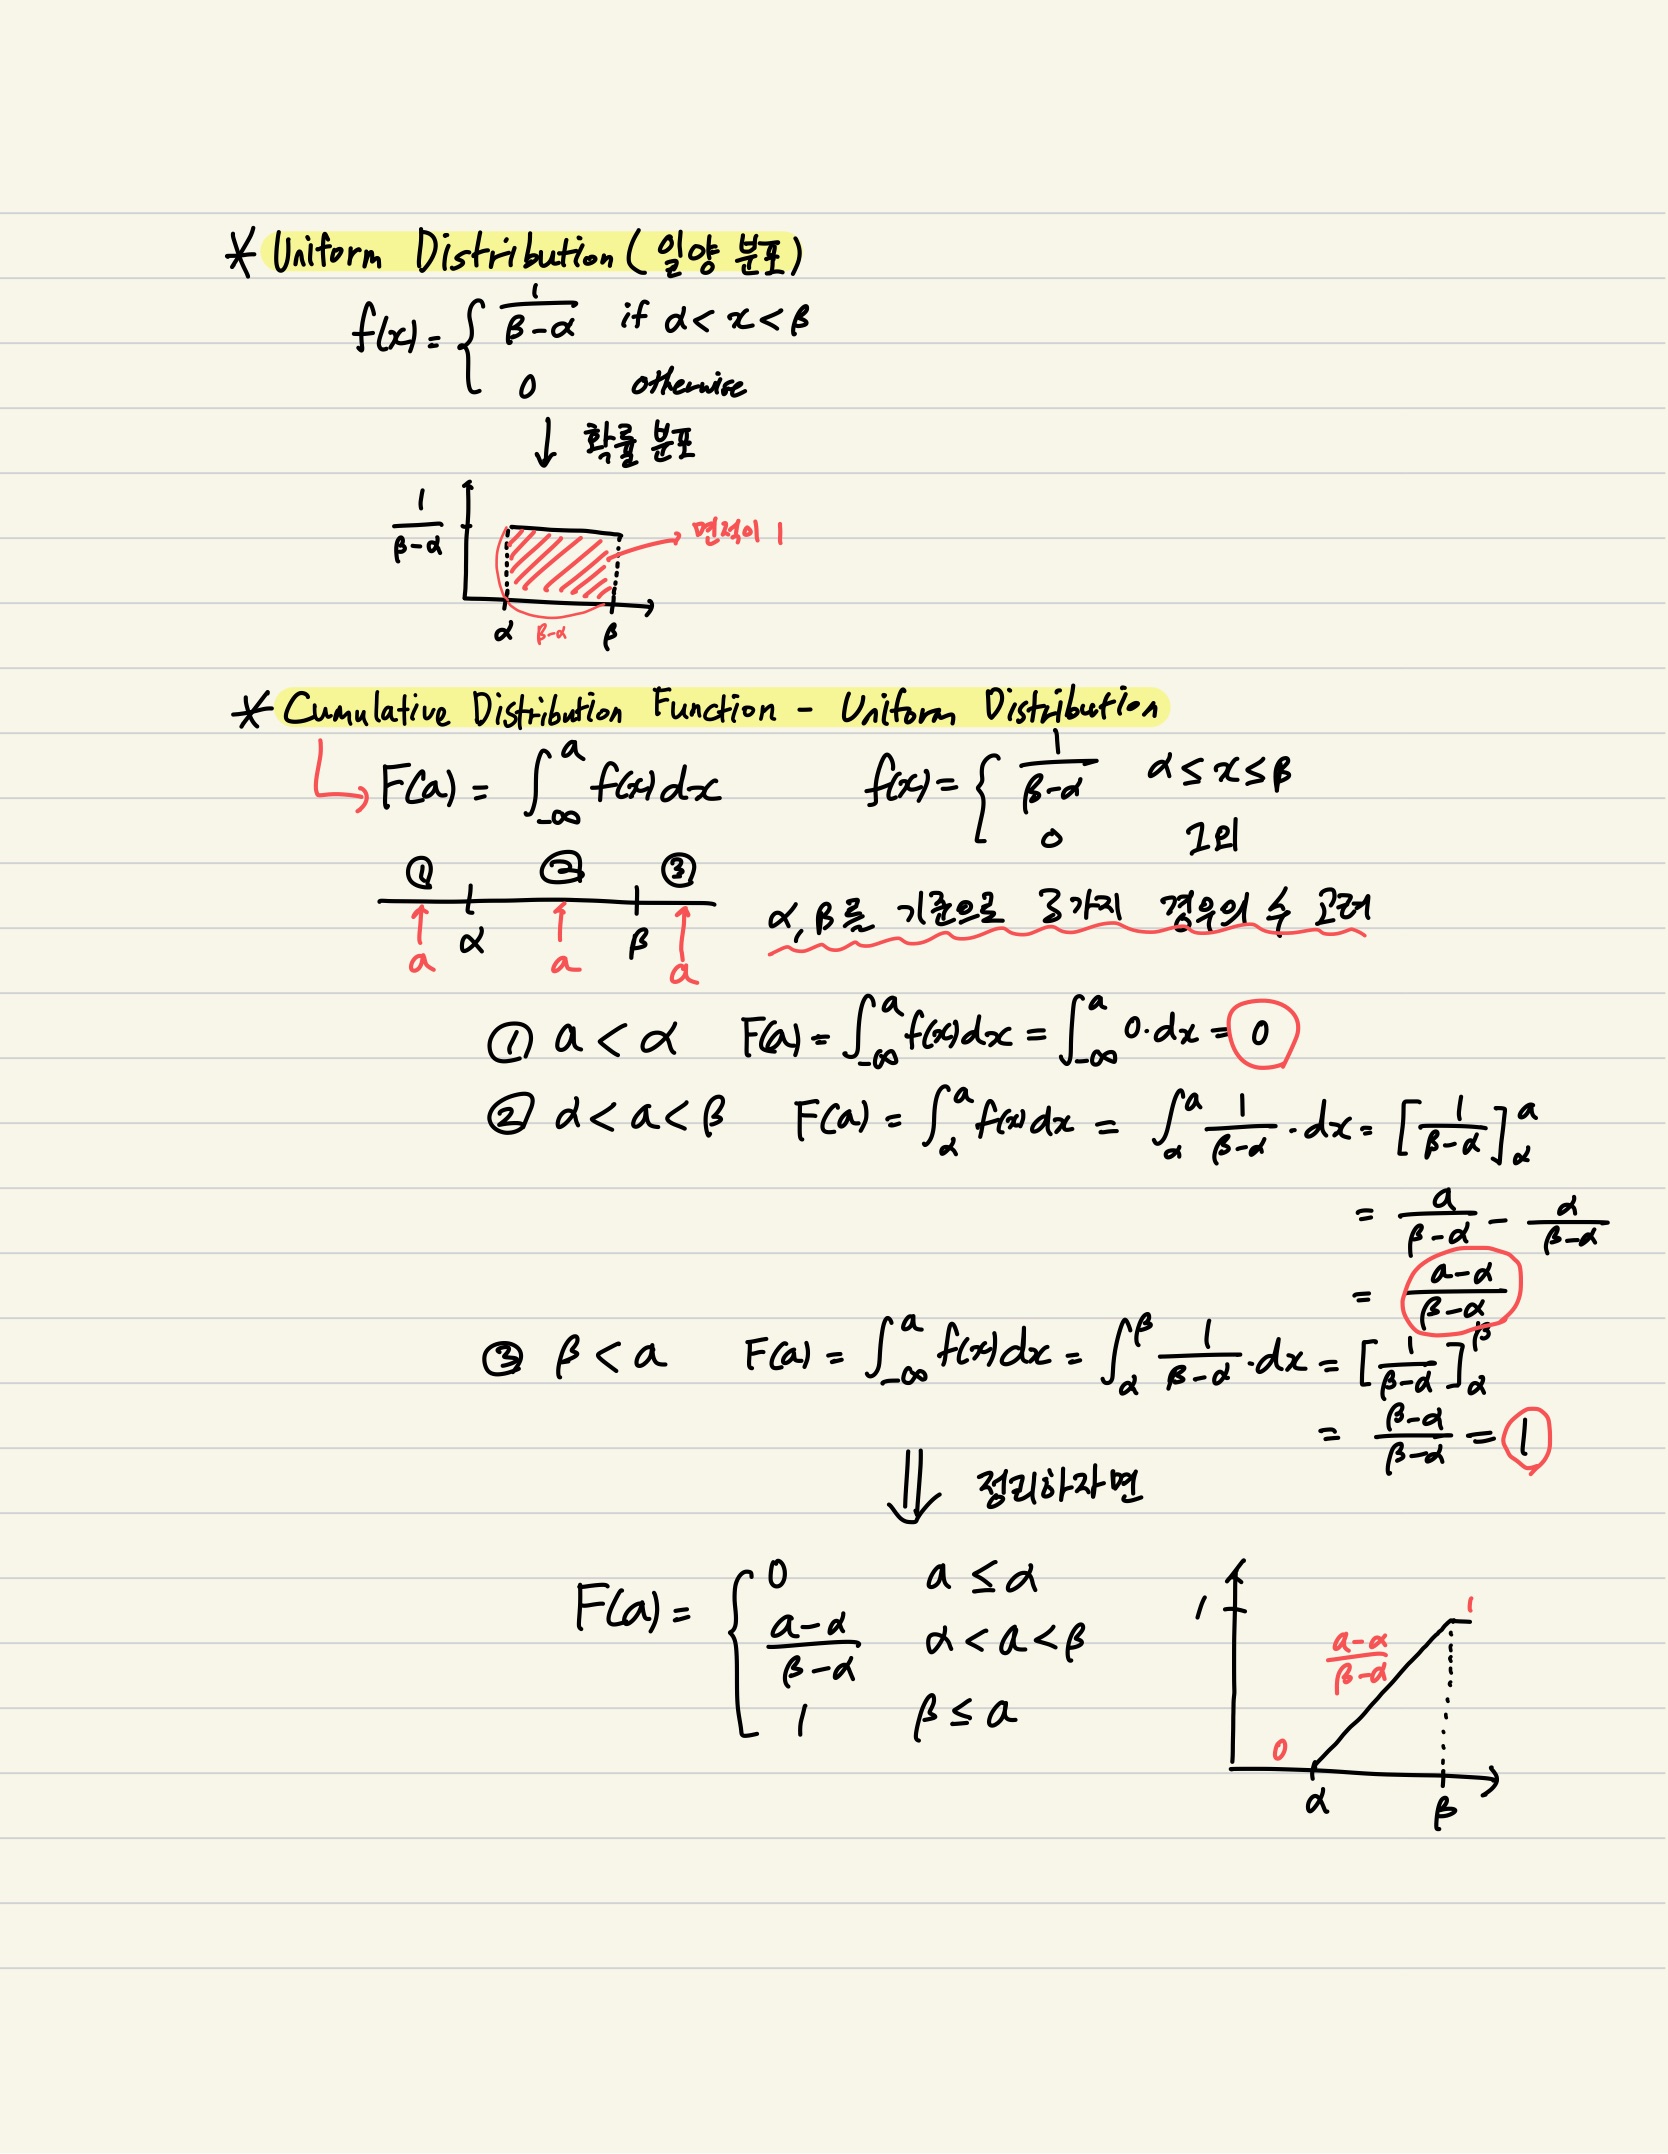 * Uniform Distribution (일양 분포)
f(x) = { 1/(β-α) if α < x < β
0 otherwise
↓ 확률 분포
1/(β-α)
→ 면적이 1
α β-α β
* Cumulative Distribution Function - Uniform Distribution
→ F(a) = ∫_{-∞}^{a} f(x)dx f(x) = { 1/(β-α) α ≤ x ≤ β
0 그외
① ② ③
α β
a a a
α, β를 기준으로 3가지 경우의 수 고려
① a < α F(a) = ∫_{-∞}^{a} f(x)dx = ∫_{-∞}^{a} 0·dx = 0
② α < a < β F(a) = ∫_{α}^{a} f(x)dx = ∫_{α}^{a} 1/(β-α) · dx = [1/(β-α)]_{α}^{a}
= a/(β-α) - α/(β-α)
= (a-α)/(β-α)
③ β < a F(a) = ∫_{-∞}^{a} f(x)dx = ∫_{α}^{β} 1/(β-α) · dx = [1/(β-α)]_{α}^{β}
= (β-α)/(β-α) = 1
⇓ 정리하자면
F(a) = { 0 a ≤ α
(a-α)/(β-α) α < a < β
1 β ≤ a
1 1
(a-α)/(β-α)
0
α β